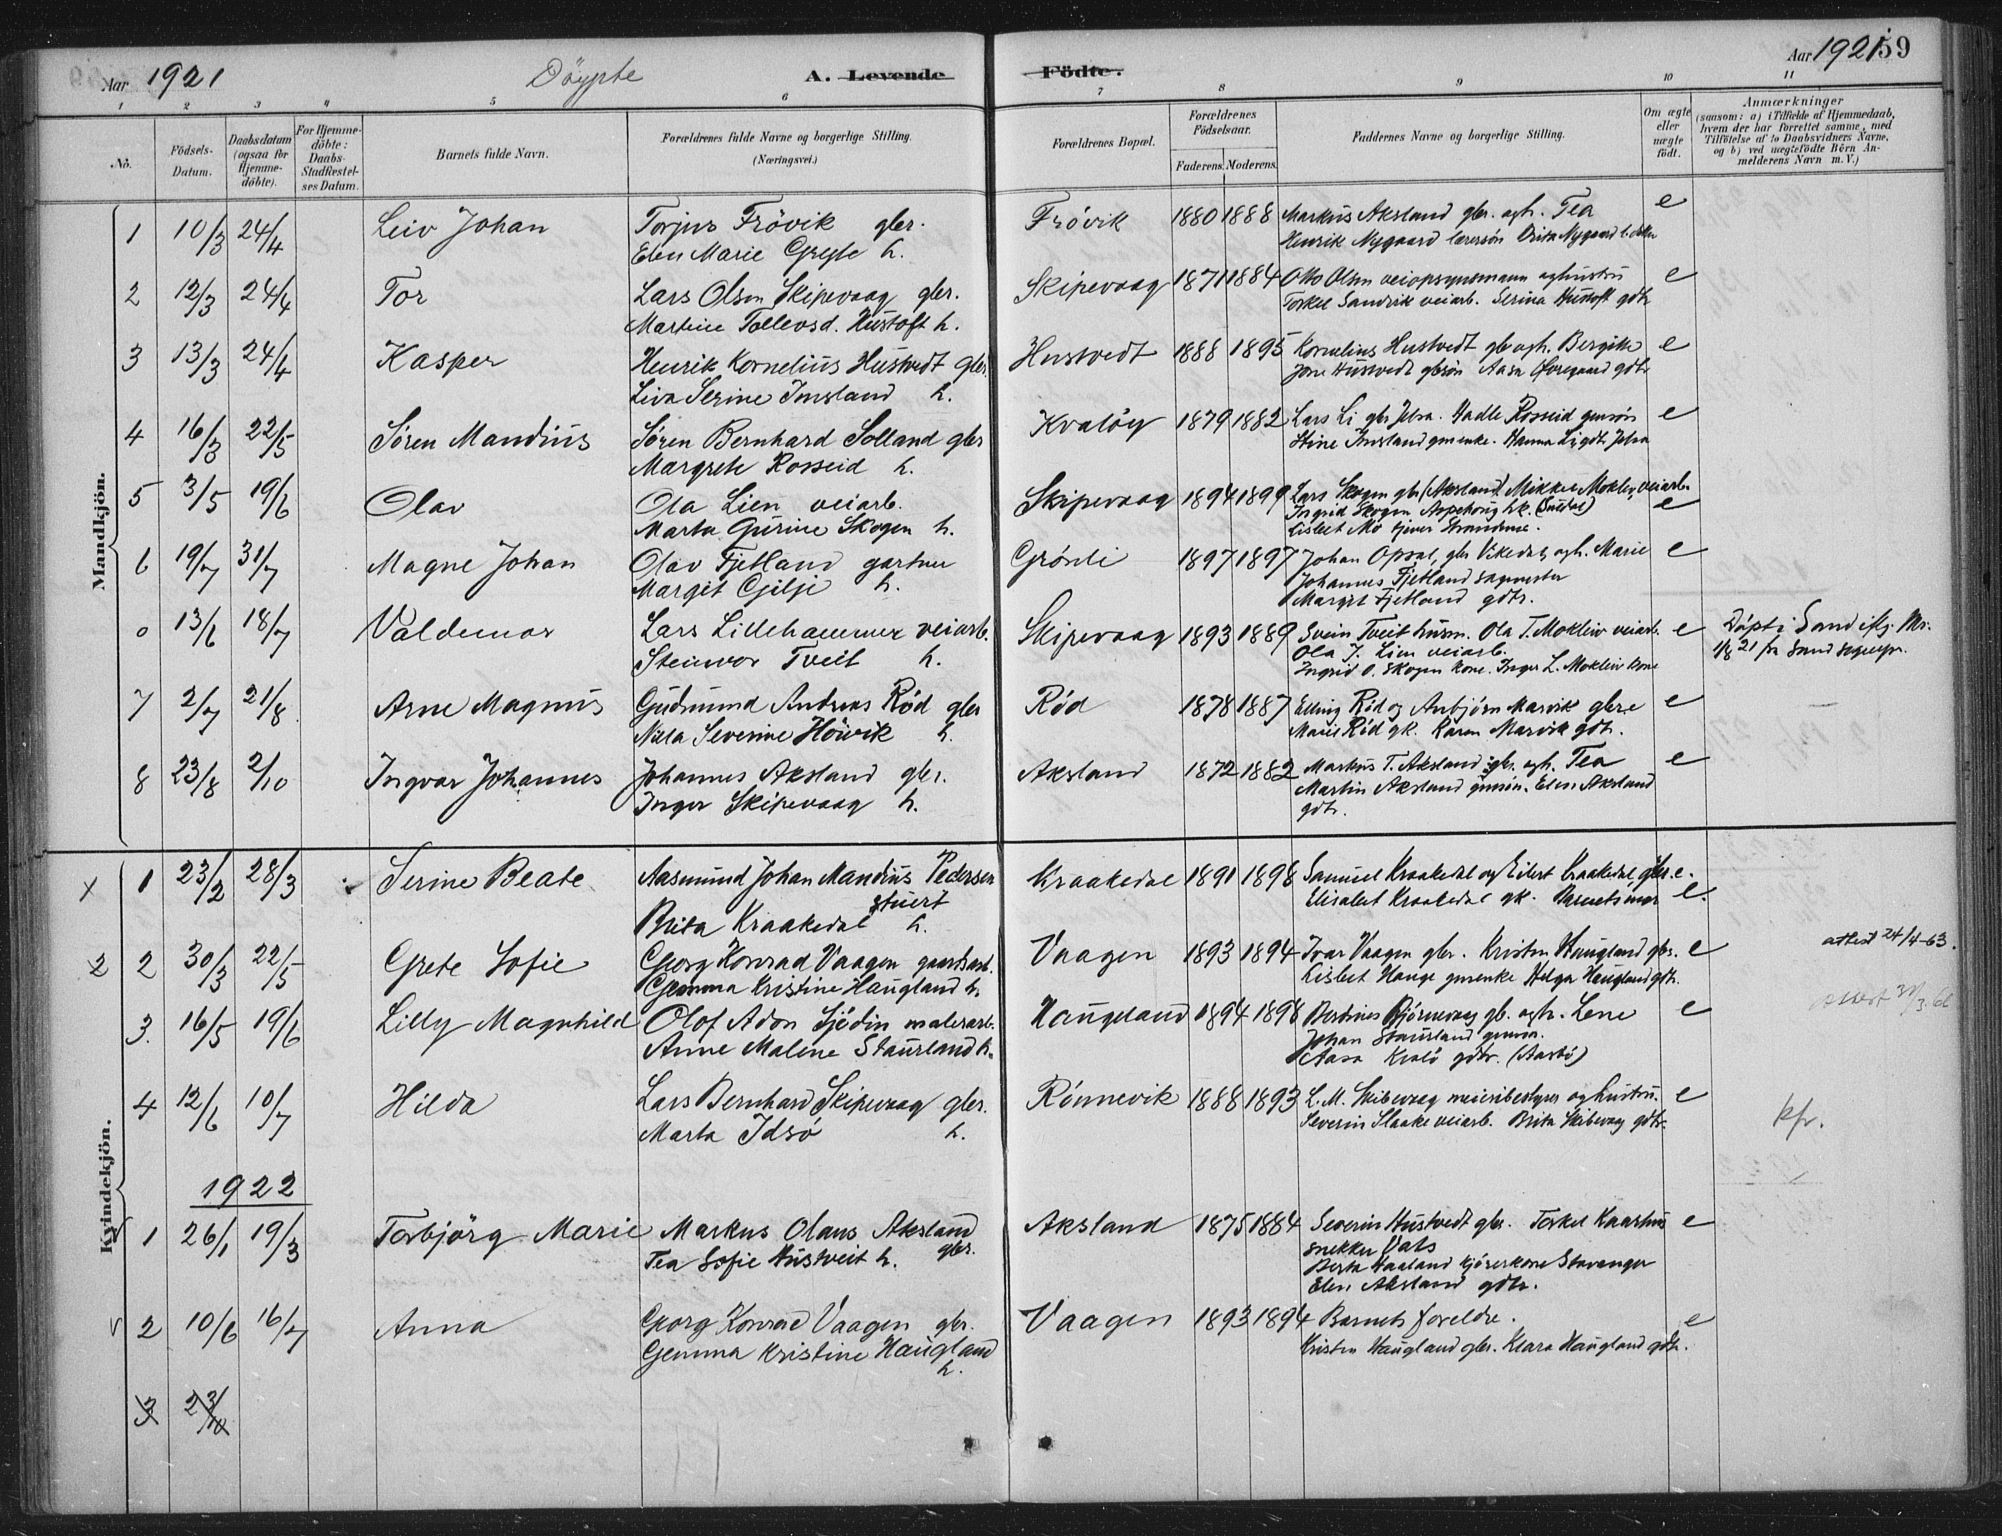 Aar 1921 Döypte A. Levende Födte. Aar 1921 59
1 2 3 4 5 6 7 8 9 10 11
No. Födsels-Datum. Daabsdatum (ogsaa for Hjemme-döbte). For Hjemme-döbte: Daabs-Stadfæstel-ses Datum. Barnets fulde Navn. Forældrenes fulde Navne og borgerlige Stilling. (Næringsvei.) Forældrenes Bopæl. Forældrenes Födselsaar. Faderens. Moderens. Faddernes Navne og borgerlige Stilling. Om ægte eller uægte født. Anmærkninger (saasom: a) i Tilfælde af Hjemmedaab, hvem der har forrettet samme, med Tilføielse af to Daabsvidners Navne, og b) ved uægtefödte Börn An-melderens Navn m. V.)
Mandkjön.
1 10/3 24/4 Leiv Johan Torjus Frövik gbr. Frövik 1880 1888 Markus Aksland gbr. ogh. Tea e
Elen Marie Grejte h. Henrik Nygaard lærersön Brita Nygaard
2 12/3 24/4 Tor Lars Olsen Skipevaag gbr. Skipevaag 1871 1884 Otto Olsen veiopsynsmann og hustru e
Martine Tollevsd. Hustoft h. Torkel Sandvik veiarb. Serina Hustoft gdtr
3 13/3 24/4 Kasper Henrik Kornelius Hustvedt gbr. Hustvedt 1888 1895 Kornelius Hustvedt gb ogh. Bergitte e
Liva Serine Imsland h. Jone Hustvedt gbrsön Aasa Øvregaard gdtr
4 16/3 22/5 Søren Mandius Søren Bernhard Solland gbr Kvaløy 1879 1882 Lars Li gbr Jelsa. Hadle Rosseid gmsøn e
Margrete Rosseid h. Stine Imsland gmenke. Hanna Li gdtr Jelsa
5 3/5 19/6 Olav Ola Lien veiarb. Skipevaag 1894 1899 Lars Skogen gbr (Aksland). Mikkel Moklev veiarb.
Marta Gurine Skogen h. Ingrid Skogen hk. (Suldal) e
Lisbet Mo tjener Strandene.
6 19/7 31/7 Magne Johan Olav Fjetland gartner Grønli 1897 1897 Johan Opsal, gbr Vikedal, ogh. Marie e
Margit Gjilje h. Johannes Fjetland sagmester
Margit Fjetland gdtr.
0 13/6 18/7 Valdemar Lars Lillehammer veiarb. Skipevaag 1893 1889 Svein Tveit husm. Ola T. Moklev veiarb. e Döpt i Sand iflg.
Steinvor Tveit h. Ola J. Lien veiarb. 1/8 21 fra Sand sogepr.
Ingrid O. Skogen kone. Inger L. Moklev kone
7 2/7 21/8 Arne Magnus Gudmund Andreas Rød gbr Rød 1878 1887 Elling Rød og Anbjørn Marvik gbre e
Nilla Severine Höivik h. Marie Rød gk. Karen Marvik gdtr.
8 23/8 2/10 Ingvar Johannes Johannes Aksland gbr. Aksland 1872 1882 Markus T. Aksland gbr. ogh. Tea e
Inger Skipevaag h. Martin Aksland gmsøn. Elen Aksland
gdtr.
Kvindekjön.
x 1 23/2 28/3 Serine Beate Aasmund Johan Mandius Pedersen Kraakedal 1891 1898 Samuel Kraakedal og Eilert Kraakedal, gbr.e.
stuert Elisabet Kraakedal gk. Barnets mor e.
Brita Kraakedal h.
2 2 30/3 22/5 Grete Sofie Georg Konrad Vaagen gaardsarb. Vaagen 1893 1894 Ivar Vaagen gbr. Kristen Haugland gbr. e attest 24/4-63.
Gemma Kristine Haugland h. Lisbet Hauge gmenke Helga Haugland gdtr.
3. 16/5 19/6 Lilly Magnhild Olof Adon Sjödin malerarb. Haugland 1894 1898 Bertines Bjørnevaag gb. ogh. Lene e attest
Anne Malene Staurland h. Johan Staurland gmsøn.
Aasa Kvalö gdtr. (Aarbö)
4 12/6 10/7 Hilda Lars Bernhard Skipevaag gbr. Rönnevik 1888 1893 L. M. Skibevaag meieribestyrer og hustru. e kfr.
Marta Idsö h. Severin Slaake veiarb. Brita Skibevaag gdtr.
1922
1 26/1 19/3 Torbjörg Marie Markus Olaus Aksland Aksland 1875 1884 Severin Hustvedt gbr. Torkel Kaarhus e
Tea Sofie Hustveit h. gbr. snekker Vats
Berta Haaland kjørerkone Stavanger
Elen Aksland gdtr.
v 2 10/6 16/7 Anna Georg Konrad Vaagen gbr. Vaagen 1893 1894 Barnets foreldre. e
Gemma Kristine Haugland Kristen Haugland gbr. Klara Haugland gdtr.
h.
3 23/10